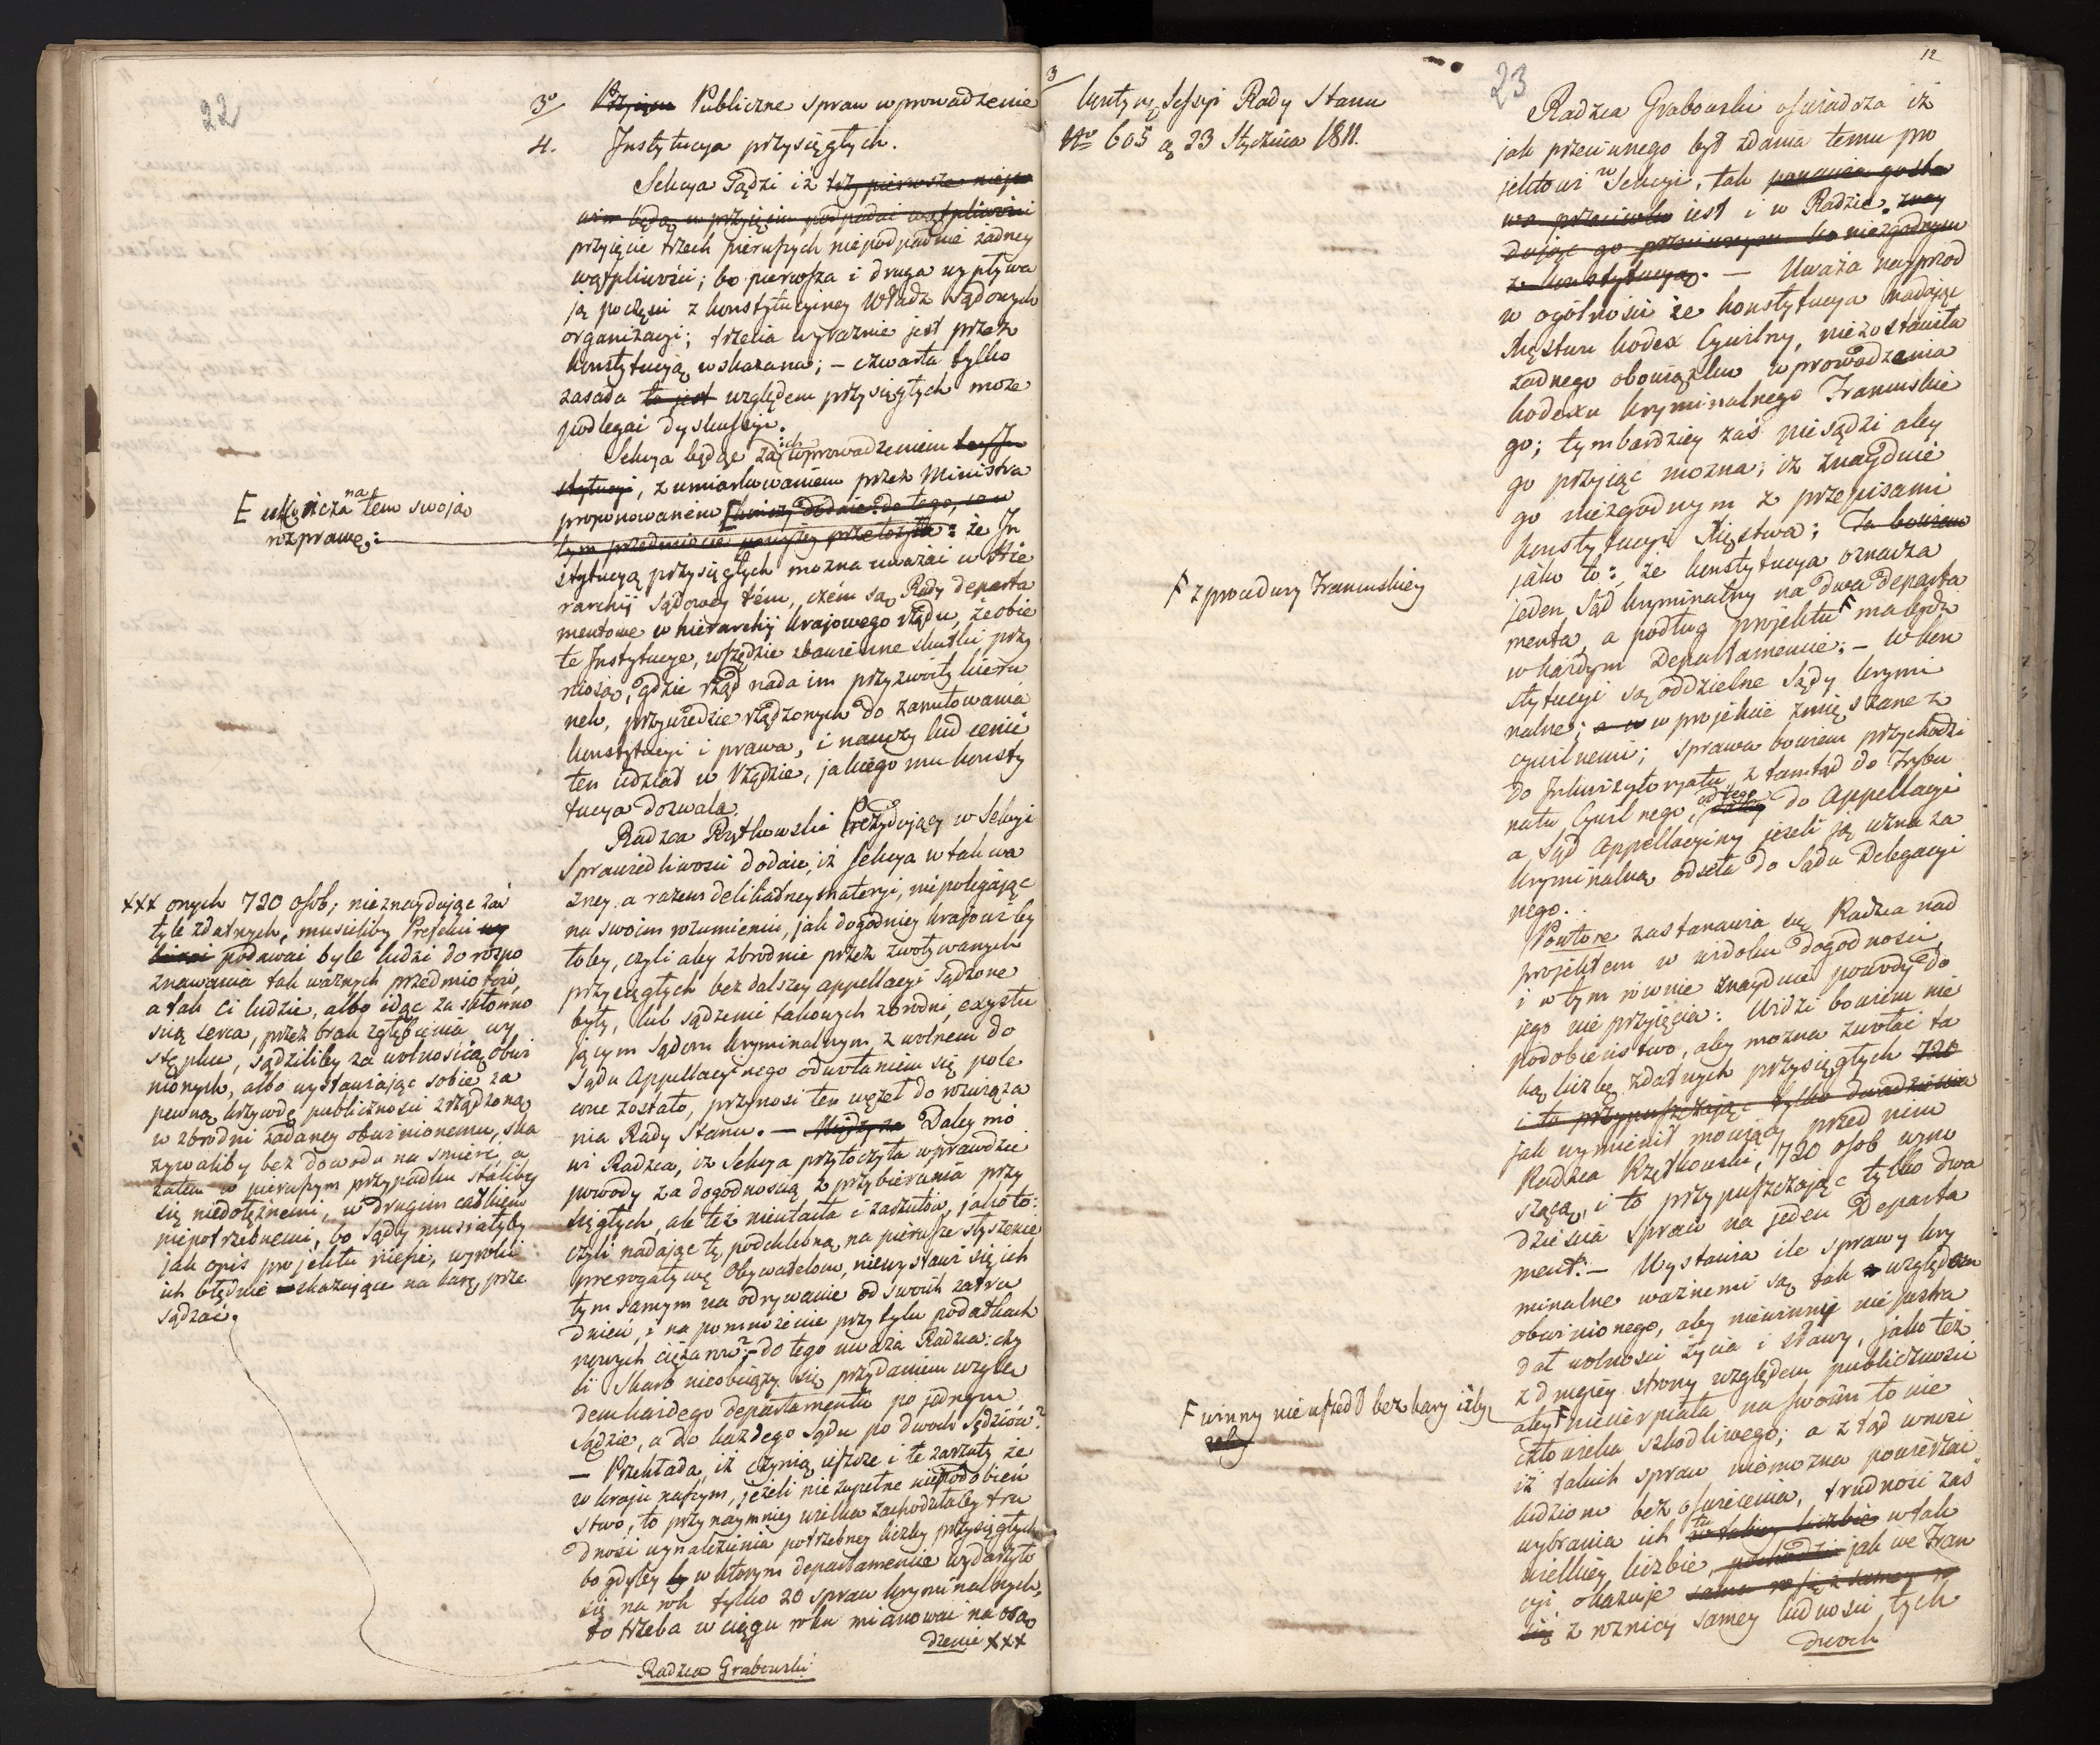 22
3º/ Przyjęcie Publiczne spraw wprowadzenie
4. Instytucya przysięgłych.
Sekcya Sądzi iż trzy pierwsze
będą w przyjęciu podpadać wątpliwości
przyięcie trzech pierwszych niepodpadnie żadney
wątpliwości; bo pierwsza i druga wypływa
ią poczęści z konstytucyiney Władz Sądowych
organizacyi; trzecia wyraznie jest przez
konstytucyą wskazana; – czwarta tylko
zasada to jest względem przysięgłych może
podlegać dyskussyi.
Sekcya będąc za ich wprowadzeniem tey In
stytucyi, z umiarkowaniem przez Ministra
proponowaniem
tym przedmiocie powyżey przełożyła: że In
stytucyą przysięgłych można uważać w Hie
rarchij sądowey tém, czém są Rady departa
mentowe w hierarchij krajowego rządu, że obie
te Instytucye, wszędzie zbawienne skutki przy
niosą, gdzie rząd nada im przyzwoity kieru
nek, przywiedzie rządzonych do zamiłowania
konstytucyi i prawa, i nauczy lud cenić
ten udział w Rządzie, jakiego mu konsty
tucya dozwala.
Radzca Rzętkowski Prezydujący w Sekcyi
Sprawiedliwości dodaie, iż Sekcya w tak wa
żney a razem delikatney materyi, niepolegając
na swoim rozumieniu, jak dogodniey krajowi by
łoby, czyli aby zbrodnie przez zwoływanych
przysięgłych bez dalszey appellacyi sądzone
były, lub sądzenie takowych zbrodni, exystu
jącym sądom kryminalnym, z wolnem do
Sądu Appellacyinego odwołaniem się pole
cone zostało, przynosi ten węzeł do rozwiąza
nia Rady Stanu. – Daley mó
wi Radzca, iż Sekcya przytoczyła wprawdzie
powody za dogodnością z przybierania przy
sięgłych, ale też nieutaiła i zarzutów, jako to:
czyli nadając tę podchlebną na pierwsze słyszenie
prerogatywę Obywatelom, niewystawi się ich
tym samym na odrywanie od swoich zatru
dnień, i na pomnożenie przy tylu podatkach
nowych ciężarów? – do tego uważa Radzca: czy
li Skarb nieobciąży się przydaniem wzglę
dem każdego departamentu po jednym
Sądzie, a do każdego Sądu po dwóch Sędziów?
– Przekłada, iż czynią ieszcze i te zarzuty że
w kraju naszym, jeżeli nie zupełne niepodobień
stwo, to przynaymniey wielka zachodziłaby tru
dność wynalezienia potrzebney liczby przysięgłych
bo gdyby w którym departamencie wydarzyło
się na rok tylko 20 spraw kryminalnych,
to trzeba w ciągu roku mianować na osą
dzenie xxx
Radzca Grabowski
E na tem swoją
rozprawę:
xxx onych 720 osób; nieznaydując zaś
tyle zdatnych, musieliby Prefekci
podawać byle ludzi do rozpo
znawania tak ważnych przedmiotów,
a tak ci ludzie, albo idąc za skłonno
ścią serca, przez brak zgłębienia wy
stępku, sądziliby za wolnością obwi
nionych, albo wystawiając sobie za
pewną krzywdę publiczności zrządzoną
w zbrodni zadaney obwinionemu, ska
zywaliby bez dowodu na śmierć, a
zatem w pierwszym przypadku staliby
się niedołężnemi, w drugim całkiem
niepotrzebnemi, bo sądy musiałyby
jak opis projektu niesie, wyroki
ich błędnie skazujące na karę, prze
sądzać.
3
kontyn. Sessyi Rady Stanu
Nro 605 d. 23 Stycznia 1811.
23
12
Radzca Grabowski oświadcza iż
jak przeciwnego był zdania temu pro
jektowi w Sekcyi, tak
iest i w Radzie. znay
dując go przeciwnym bo niezgodnym
z konstytucyą. – Uważa nayprzod
w ogólności że konstytucya nadając
Xięstwu kodex Cywilny, niezostawiła
żadnego obowiązku wprowadzenia
kodexu kryminalnego Francuskie
go; tymbardziey zaś nie sądzi aby
go przyjąć można; iż znayduie
go niezgodnym z przepisami
konstytucyi Xięstwa; Ta bowiem
jako to: że konstytucya oznacza
jeden Sąd kryminalny na dwa departa
menta, a podług projektu F ma bydź
w każdym Departamencie; – W kon
stytucyi są oddzielne Sądy krymi
nalne; w projekcie zmięszane z
cywilnemi; sprawa bowiem przychodzi
do Inkwizytoryatu, z tamtąd do Trybu
nału Cywilnego, od tego do Appellacyi
a Sąd Appellacyiny jeżeli ją uzna za
kryminalną odseła do Sądu Delegacyi
nego.
Powtóre zastanawia się Radzca nad
projektem w widoku dogodności,
i w tym równie znayduie powody do
jego nie przyjęcia: Widzi bowiem nie
podobieństwo, aby można zwołać ta
ką liczbę zdatnych przysięgłych 720
i to przypuszczając tylko dwadzieścia
jak wymienił mówiący przed nim
Radzca Rzętkowski, 720 osób wyno
szącą, i to przypuszczając tylko dwa
dzieścia spraw na jeden Departa
ment. – Wystawia ile sprawy kry
minalne ważnemi są tak względem
obwinionego, aby niewinnie nie postra
dał wolności życia i sławy, jako też
z drugiey strony względem publiczności
aby F niecierpiała na swoim łonie
człowieka szkodliwego; a ztąd wnosi
iż takich spraw niemożna powierzać
ludziom bez oświecenia, trudność zaś
wybrania ich tu w takiey liczbie w tak
wielkiey liczbie, pochodzi jak we Fran
cyi okazuje
się z rożnicy samey ludności tych
dwóch
F z procedury Francuskiey
F winny nie uszedł bez kary i żby
żeby